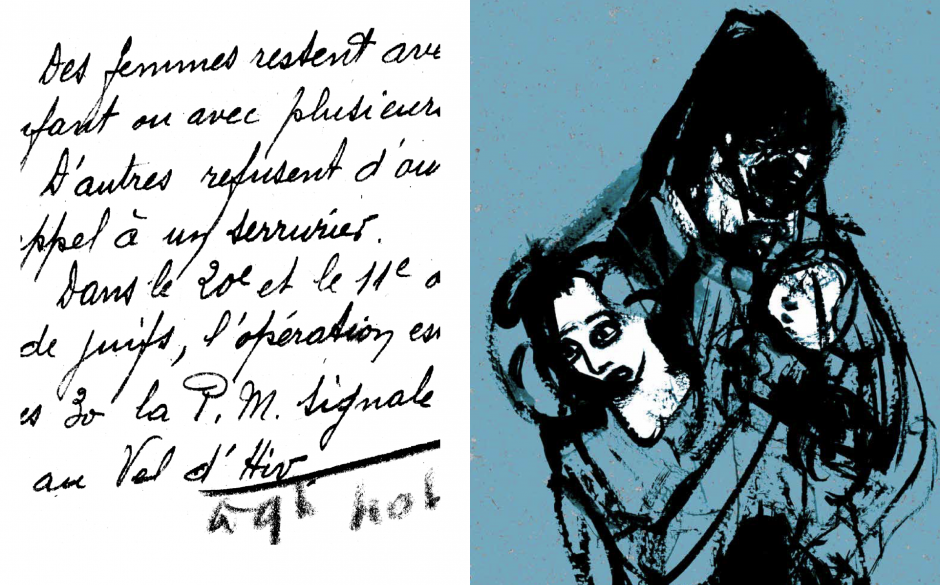 Des femmes restent ave
nfant ou avec plusieurs
D'autres refusent d'ou
ppel à un serrurier.
Dans le 20e et le 11e a
de juifs, l'opération es
es 30 la P. M. signale
au Vel d'Hiv
à 9h